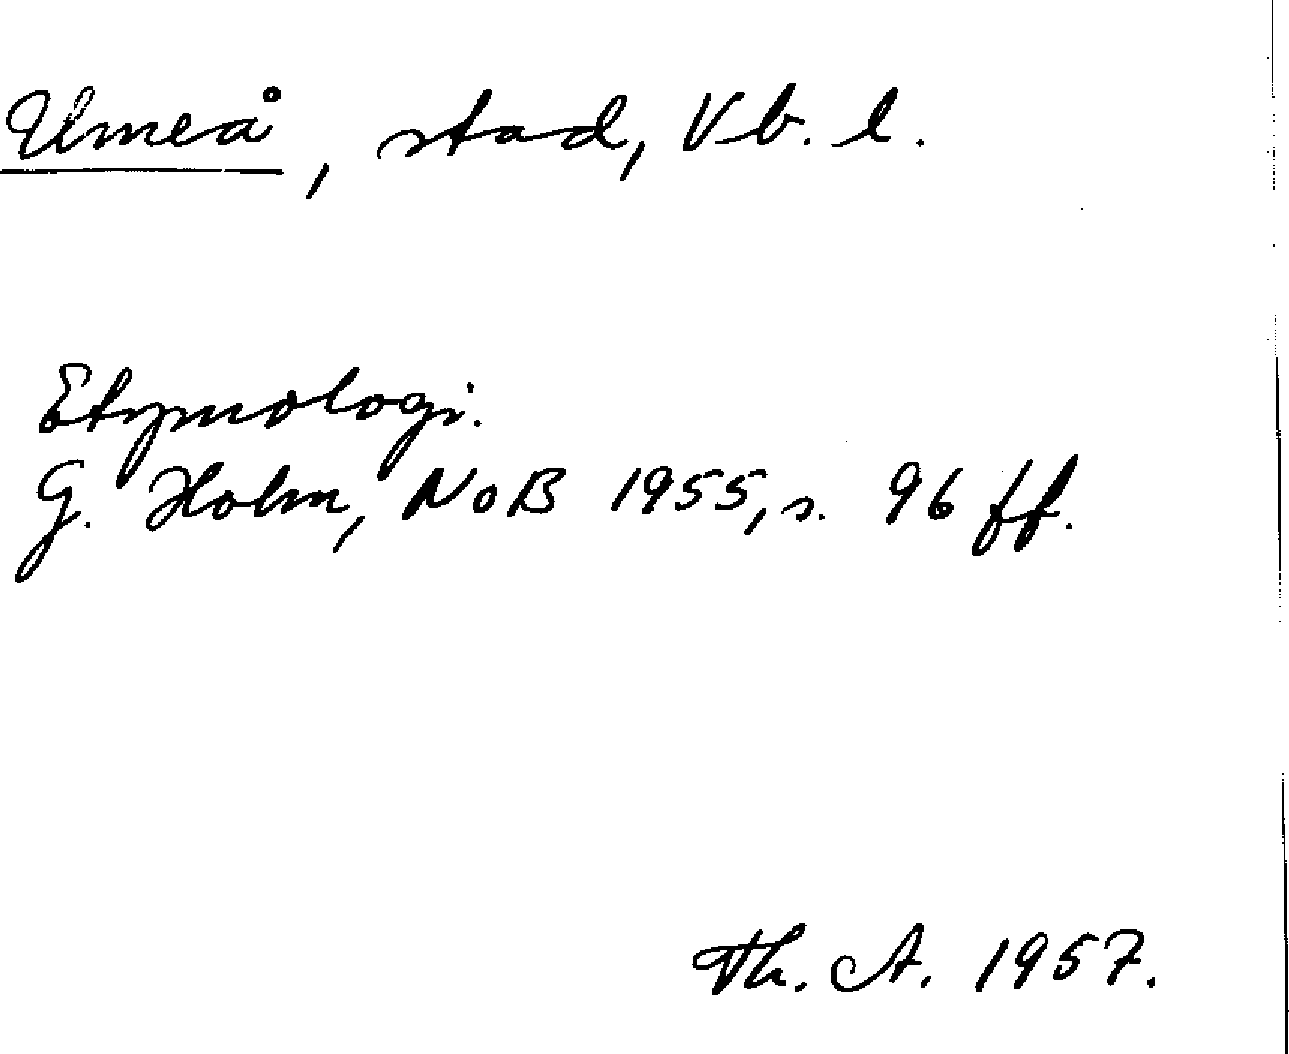 Umeå, stad, Vb. l.
Etymologi.
G. Holm, NoB 1955, s. 96 ff.
Th. A. 1957.